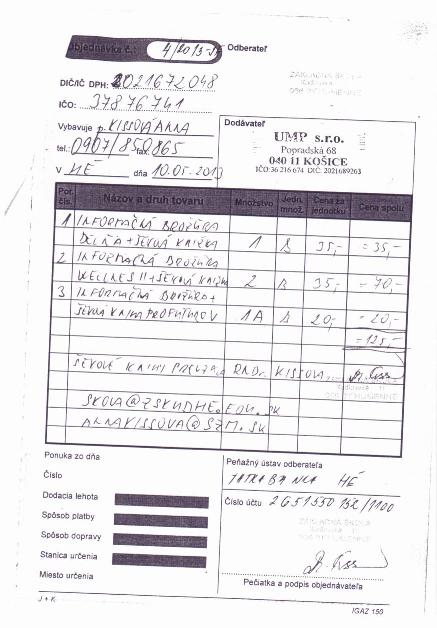 Objednávka č.: 4/2013-Š Odberateľ
ZÁKLADNÁ ŠKOLA
DIČ/IČ DPH: 2021672048
IČO: 37876741
Vybavuje p. KISSOVÁ ANNA
tel.: 0907/850865 fax:
V HÉ dňa 10.05.2013
Dodávateľ
UMP s.r.o.
Popradská 68
040 11 KOŠICE
IČO:36 216 674 DIČ: 2021689263
Por. čís. Názov a druh tovaru Množstvo Jedn. množ. Cena za jednotku Cena spolu
1 INFORMAČNÁ BROŽÚRA
+ ŠEKOVÁ KNIŽKA 1 35,- = 35,-
2 INFORMAČNÁ BROŽÚRA
WELLNES II + ŠEKOVÁ KNIŽK 2 35,- = 70,-
3 INFORMAČNÁ BROŽÚRA +
1A 20,- = 20,-
= 125,-
ŠEKOVÉ KNIHY RNDr. KISSOVÁ
SKOLA@ZSKUDHE.EDU.SK
ANNAKISSOVA@SZM.SK
Ponuka zo dňa
Číslo
Dodacia lehota
Spôsob platby
Spôsob dopravy
Stanica určenia
Miesto určenia
Peňažný ústav odberateľa
TATRA BANKA HÉ
Číslo účtu 2651550152/1100
ZÁKLADNÁ ŠKOLA
Pečiatka a podpis objednávateľa
J + K
IGAZ 150